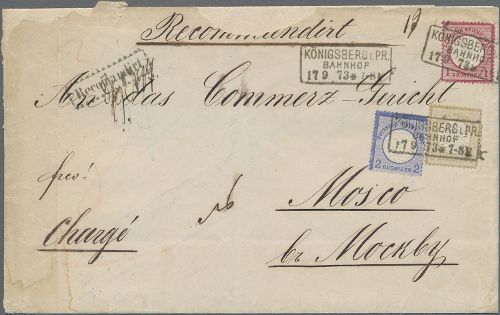 Recommandirt
KÖNIGSBERG i. PR.
BAHNHOF
17 9 73 * 7-8 N
KÖNIGSBERG i. PR.
BAHNHOF
17 9 73 *
1 GROSCHEN 1
Recommandirt
An das Commerz-Gericht
KÖNIGSBERG i. PR.
BAHNHOF
17 9 73 * 7-8 N
2 GROSCHEN 2
frco!
Mosco
Chargé
в Москву